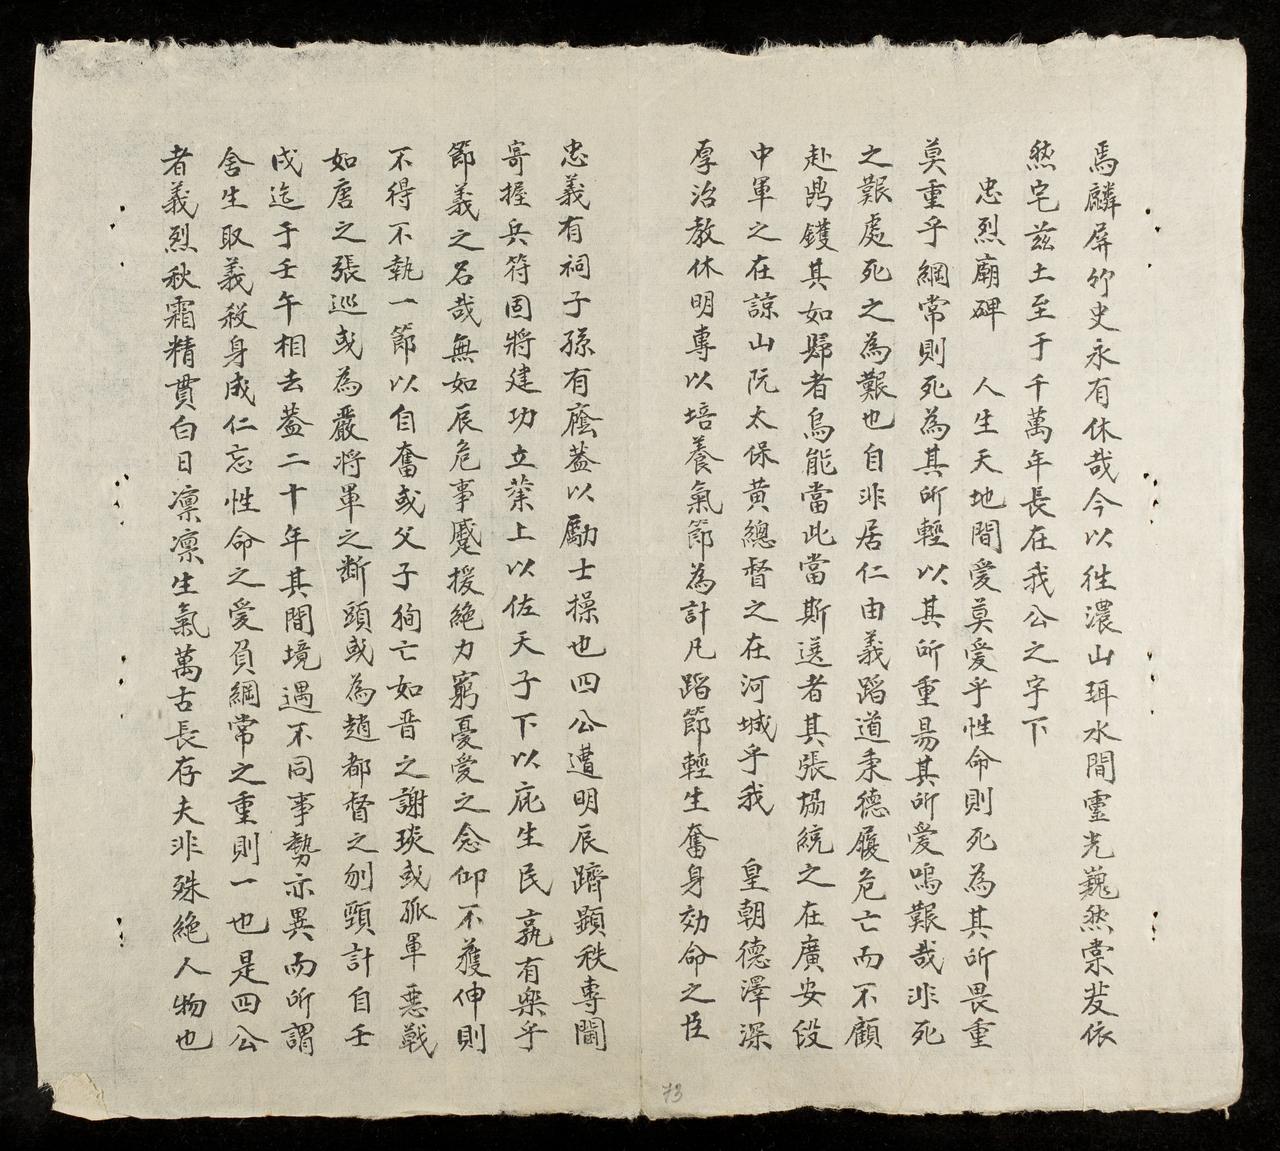 焉麟屏竹史永有休哉今以徃濃山珥水間靈光巍然棠茇依
然宅兹土至于千萬年長在我公之宇下
忠烈廟碑　人生天地間愛莫愛乎性命則死為其所畏重
莫重乎綱常則死為其所輕以其所重昜其所愛嗚艱哉非死
之艱處死之為艱也自非居仁由義蹈道秉德履危亡而不顧
赴鼎鑊其如歸者烏能當此當斯選者其張協統之在廣安段
中軍之在諒山阮太保黄總督之在河城乎我　皇朝德澤深
厚治教休明專以培養氣節為計凡蹈節輕生奮身効命之臣
忠義有祠子孫有廕葢以勵士操也四公遭明辰躋顯秩專閫
寄握兵符固將建功立業上以佐天子下以庇生民孰有樂乎
節義之名哉無如辰危事蹙援絶力窮憂愛之念仰不獲伸則
不得不執一節以自奮或父子殉亡如晋之謝琰或孤軍惡戰
如唐之張巡或為嚴將軍之断頭或為趙都督之刎頸計自壬
戌迄于壬午相去葢二十年其間境遇不同事勢亦異而所謂
舍生取義殺身成仁忘性命之愛負綱常之重則一也是四公
者義烈秋霜精貫白日凛凛生氣萬古長存夫非殊絶人物也
73